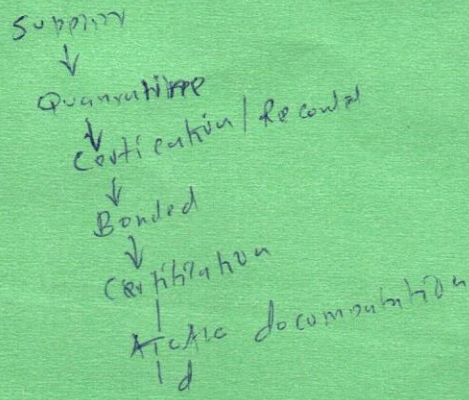 Supplier
↓
Quarantine
↓
Certification / Record
↓
Bonded
↓
Certification
documentation
d